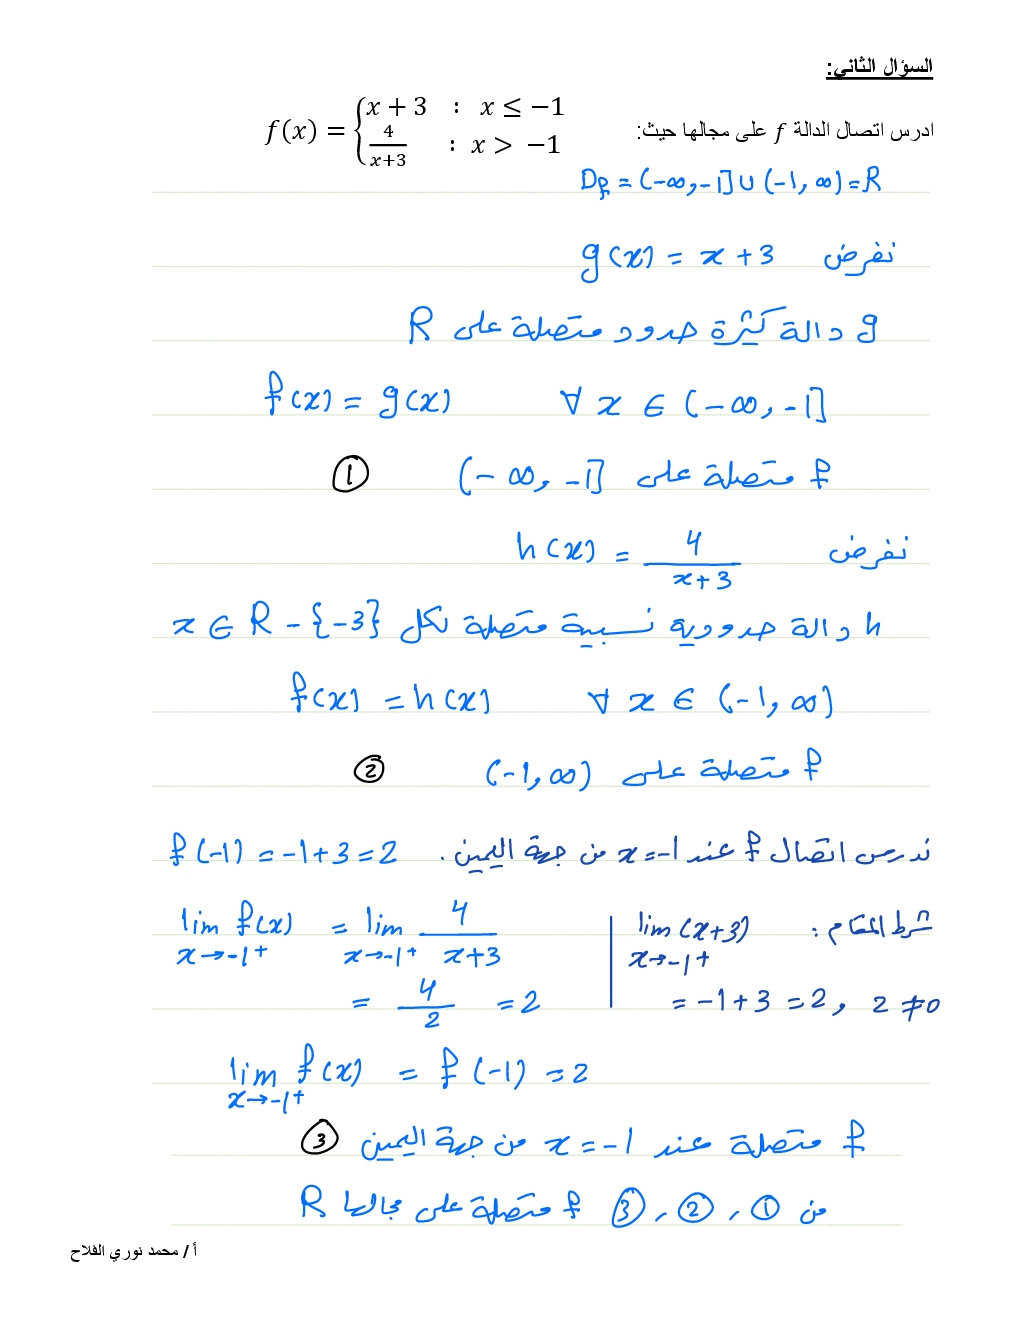 السؤال الثاني:
ادرس اتصال الدالة f على مجالها حيث: f(x) = { x + 3 : x ≤ −1
4/(x+3) : x > −1
D_f = (-∞, -1] ∪ (-1, ∞) = R
نفرض g(x) = x + 3
g دالة كثيرة حدود متصلة على R
f(x) = g(x) ∀ x ∈ (-∞, -1]
f متصلة على (-∞, -1] ①
نفرض h(x) = 4/(x+3)
h دالة حدودية نسبية متصلة لكل x ∈ R - {-3}
f(x) = h(x) ∀ x ∈ (-1, ∞)
f متصلة على (-1, ∞) ②
ندرس اتصال f عند x=-1 من جهة اليمين. f(-1) = -1+3 = 2
شرط المقام: lim x→-1+ (x+3)
= -1+3 = 2, 2 ≠ 0
lim x→-1+ f(x) = lim x→-1+ 4/(x+3)
= 4/2 = 2
lim x→-1+ f(x) = f(-1) = 2
f متصلة عند x = -1 من جهة اليمين ③
من ①, ②, ③ f متصلة على مجالها R
أ / محمد نوري الفلاح